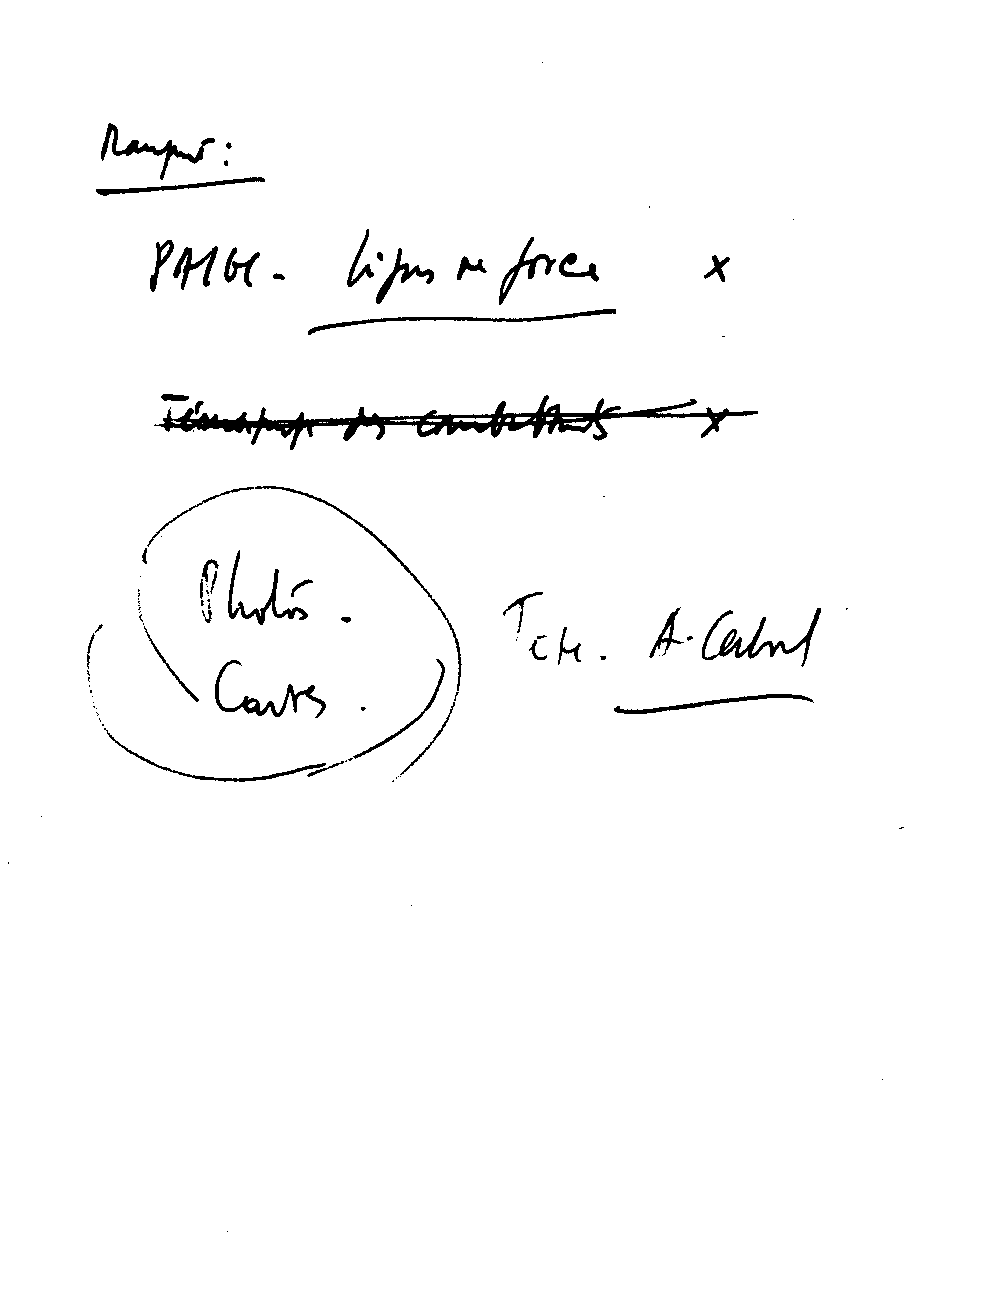 Manque:
PAIGC - Lignes de force x
Témoignage des combattants x
Photos.
Cartes.
Texte. A. Cabral